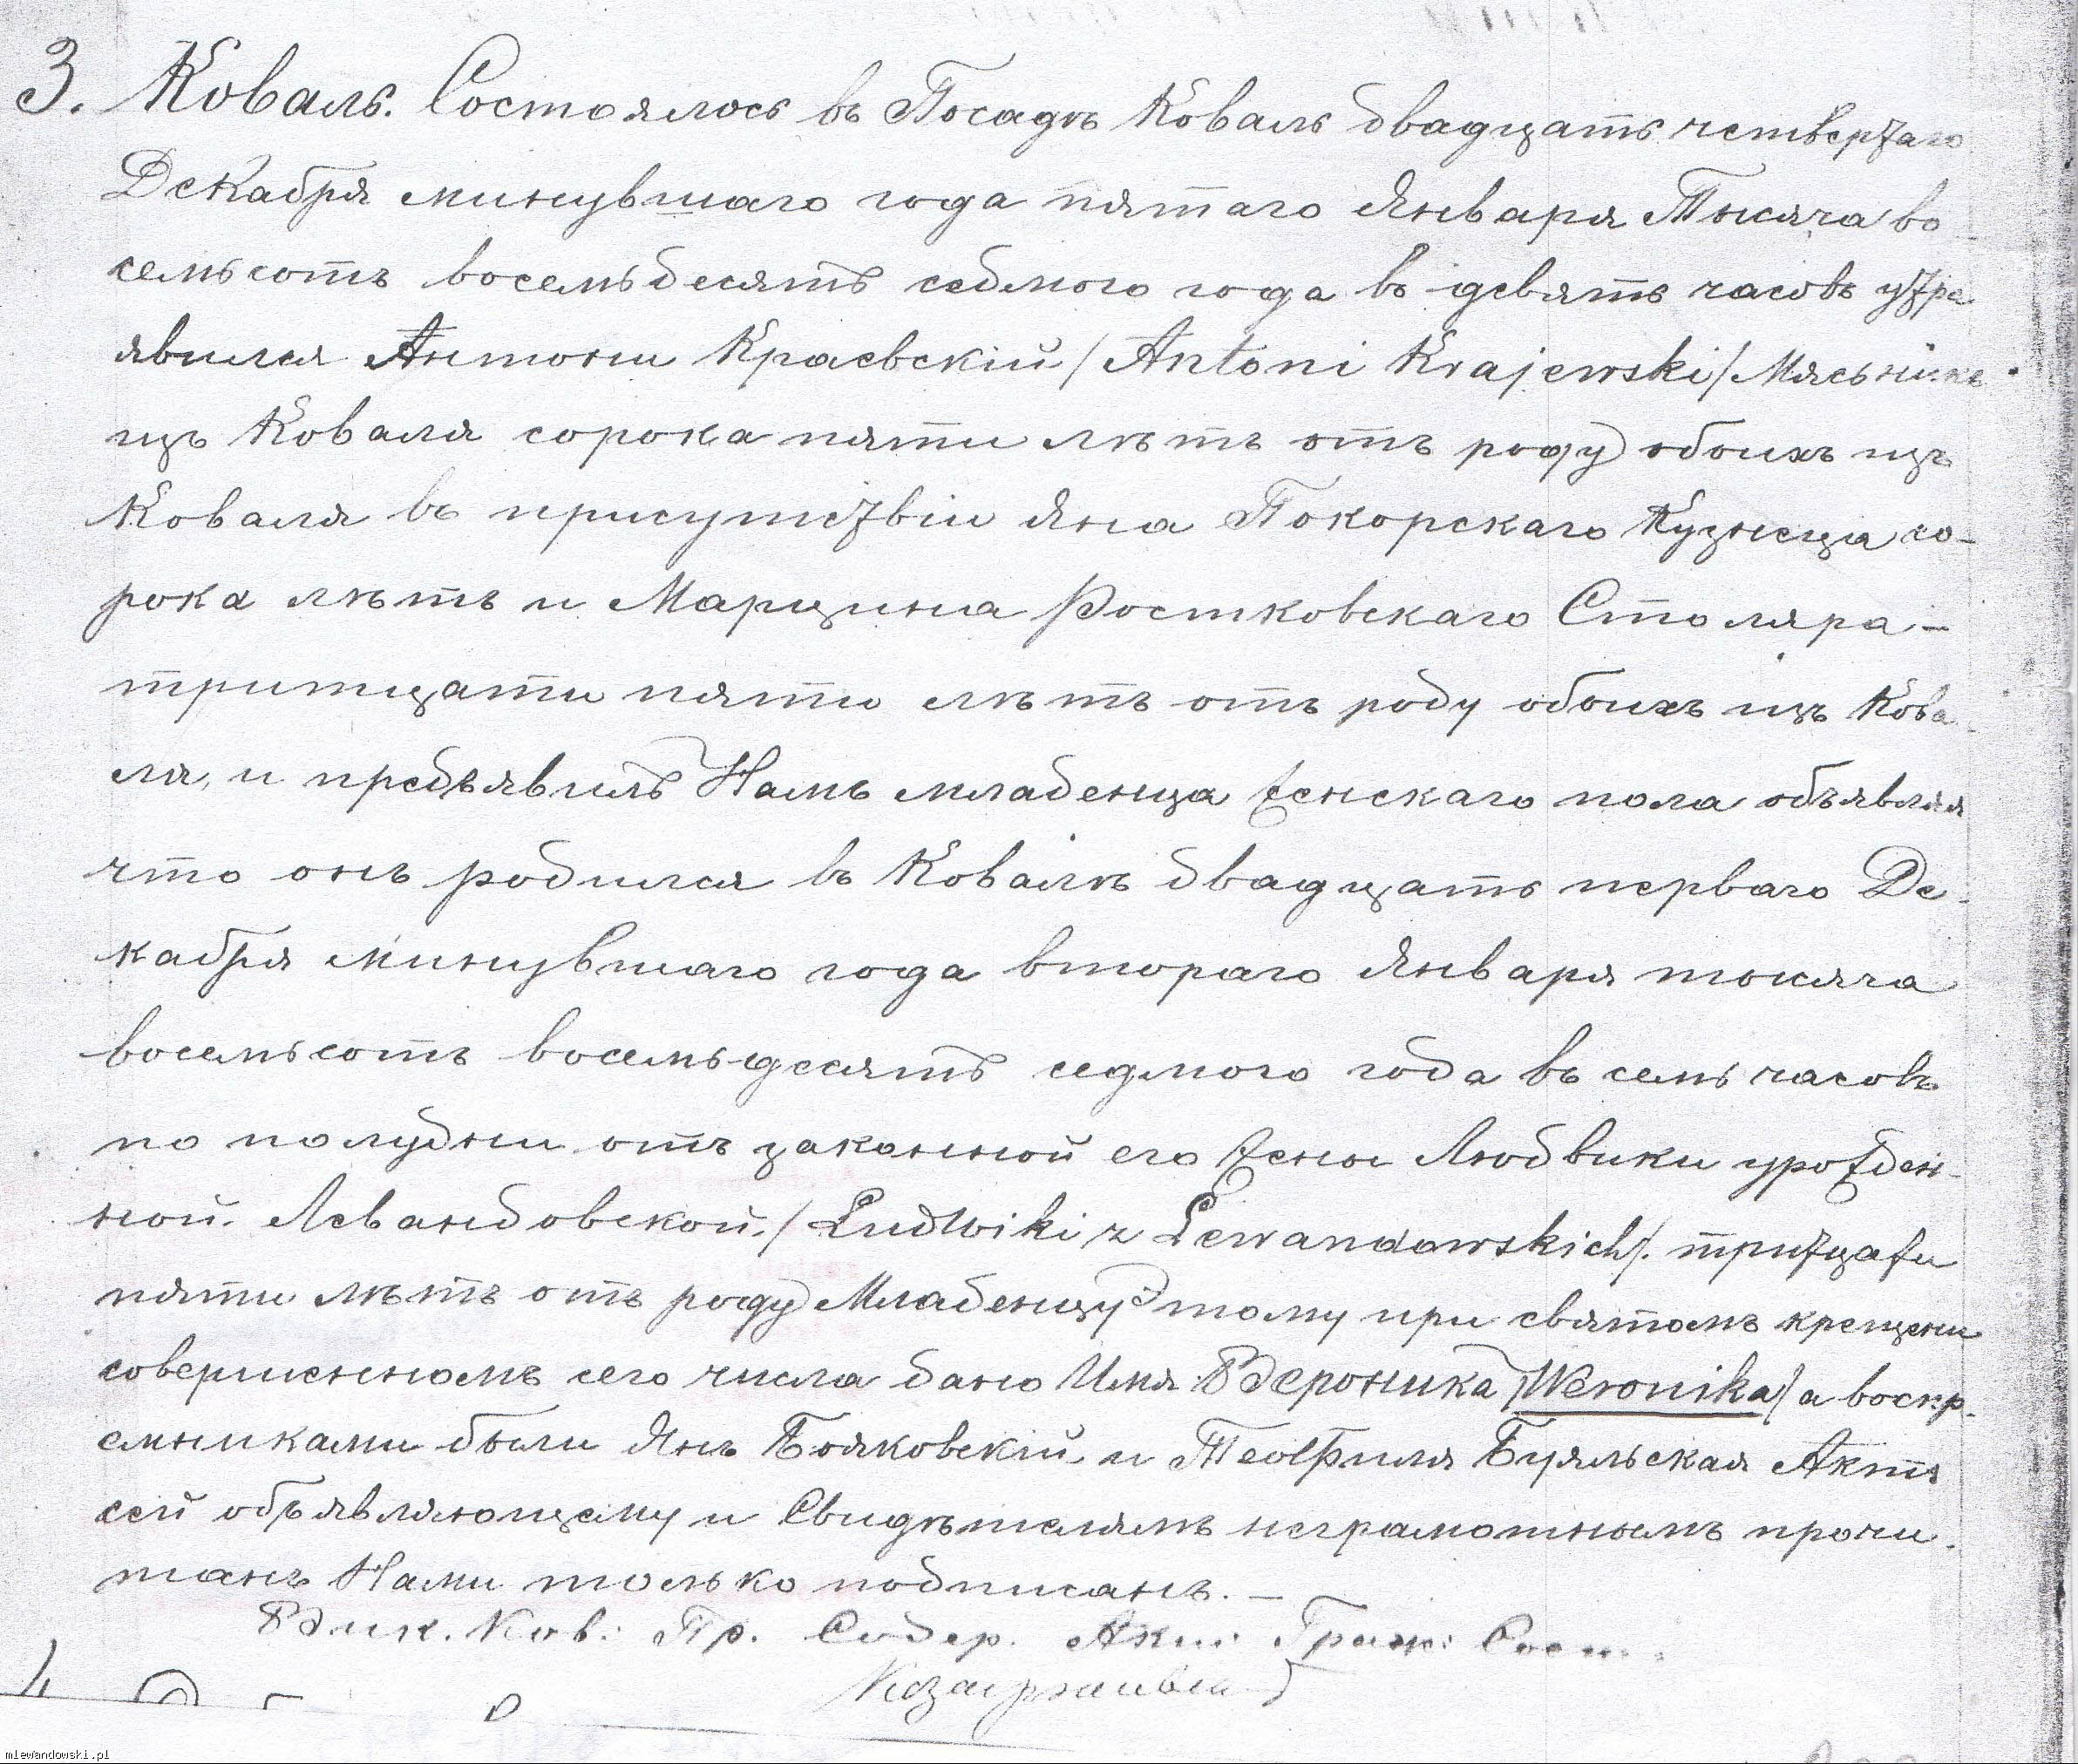 3. Коваль. Состоялось въ Посадѣ Коваль двадцать четвертаго
Декабря минувшаго года пятаго Января Тысяча во-
семьсотъ восемьдесятъ седмого года въ девять часовъ утра
явился Антони Краевскій /Antoni Krajewski/ Мясьникъ
изъ Коваля сорока пяти лѣтъ отъ роду обоихъ изъ
Коваля въ присутствіи Яна Покорскаго Кузнеца со-
рока лѣтъ и Марцина Ростковскаго Столяра -
тритцати пяти лѣтъ отъ роду обоихъ изъ Кова-
ля, и предъявилъ Намъ младенца женскаго пола объявляя
что онъ родился въ Ковалѣ двадцать перваго Де-
кабря минувшаго года втораго Января тысяча
восемьсотъ восемьдесятъ седмого года въ семь часовъ
по полудни отъ законной его жены Людвики урожден-
ной Левандовской /Ludwiki z Lewandowskich/. тритцати
пяти лѣтъ отъ роду Младенцу тому при святомъ крещени
совершенномъ сего числа дано Имя Вероника /Weronika/ а воспр-
емниками были Янъ Бояковскій и Теофиля Буяльская Актъ
сей объявляющему и Свидѣтелямъ неграмотнымъ прочи-
танъ Нами только подписанъ. —
Вик. Ков: Пр. Содер. Акт: Граж: Сост.
4
mlewandowski.pl